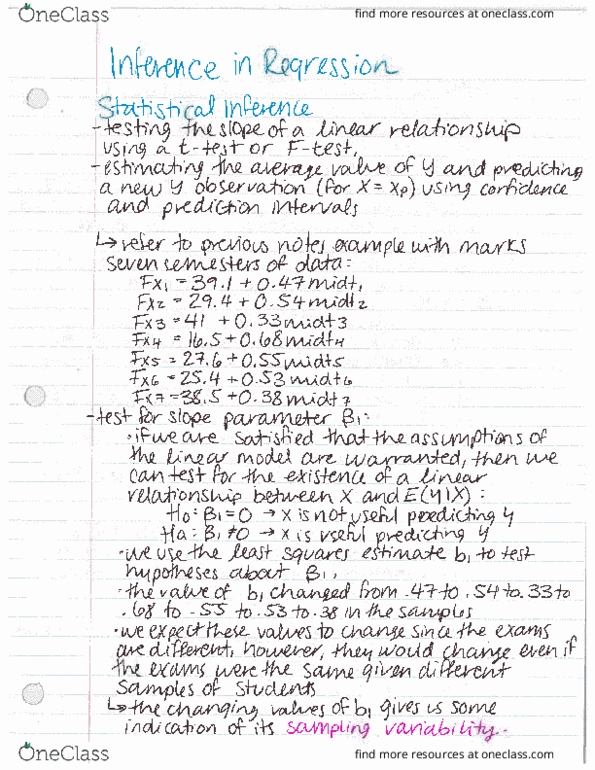 OneClass
find more resources at oneclass.com
Inference in Regression
Statistical Inference
-testing the slope of a linear relationship
using a t-test or F-test,
-estimating the average value of Y and predicting
a new Y observation (for X = xp) using confidence
and prediction intervals
↳ refer to previous notes example with marks
seven semesters of data:
Fx1 = 39.1 + 0.47midt1
Fx2 = 29.4 + 0.54midt2
Fx3 = 41 + 0.33midt3
Fx4 = 16.5 + 0.68midt4
Fx5 = 27.6 + 0.55midt5
Fx6 = 25.4 + 0.53midt6
Fx7 = 38.5 + 0.38midt7
-test for slope parameter B1:
·if we are satisfied that the assumptions of
the linear model are warranted, then we
can test for the existence of a linear
relationship between X and E(Y|X):
Ho: B1 = 0 → X is not useful predicting Y
Ha: B1 ≠ 0 → X is useful predicting Y
·we use the least squares estimate b1 to test
hypotheses about B1,
·the value of b1 changed from .47 to .54 to .33 to
.68 to .55 to .53 to .38 in the samples
·we expect these values to change since the exams
are different, however, they would change even if
the exams were the same given different
samples of students
↳ the changing values of b1 gives us some
indication of its sampling variability.
OneClass
find more resources at oneclass.com